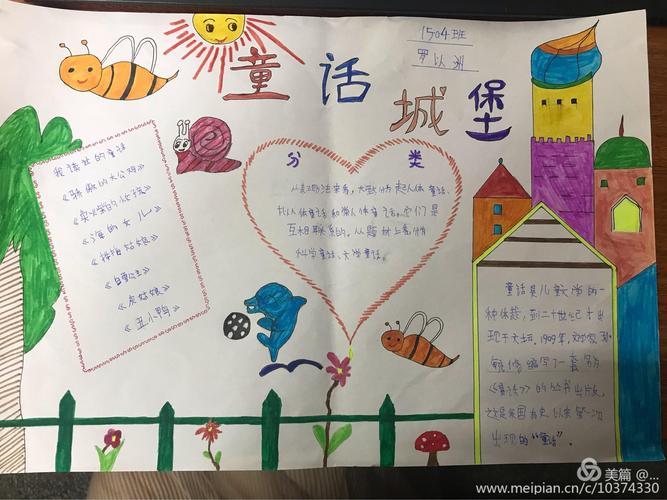 1504班
罗以洲
童话城堡
我读过的童话
《骄傲的大公鸡》
《卖火柴的小女孩》
《海的女儿》
《拇指姑娘》
《白雪公主》
《灰姑娘》
《丑小鸭》
分类
从表现方法来看，大致分为超人体童话、
拟人体童话和常人体童话。它们是
互相联系的，从题材上看有
科学童话、文学童话。
童话是儿童文学的一
种体裁，到二十世纪才出
现于
1909年，
编写了一套名为
《童话》的丛书出版，
这是我国有史以来第一次
出现的“童话”。
美篇 @...
www.meipian.cn/c/10374330